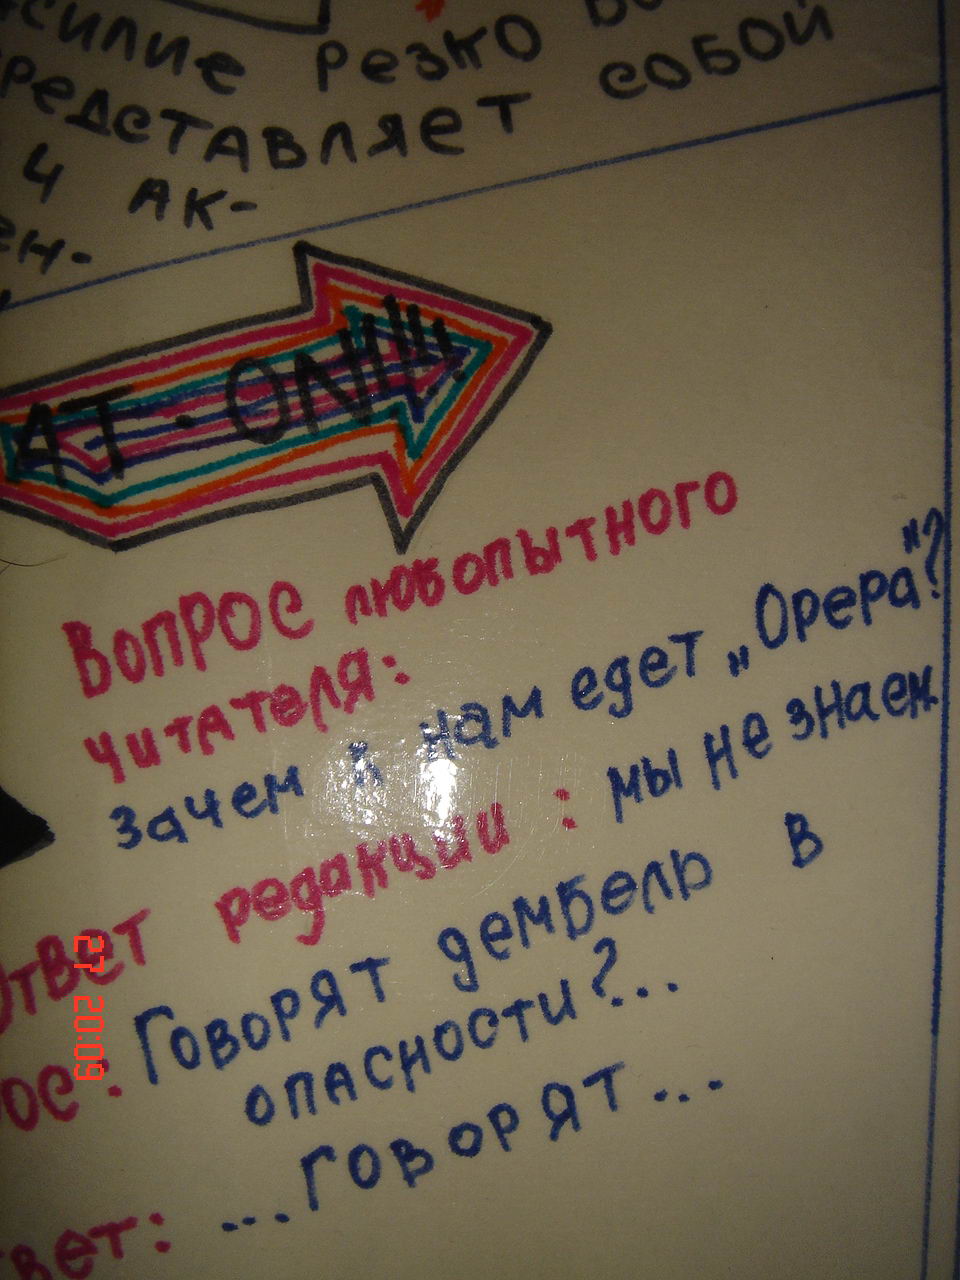 силие резко
редставляет собой
4 ак-
ен-
АТ-ON!!!
Вопрос любопытного
читателя:
Зачем к нам едет „Opera"?
Ответ редакции: мы не знаем
рос: Говорят дембель в
опасности?...
твет: ...говорят...
27 20:09